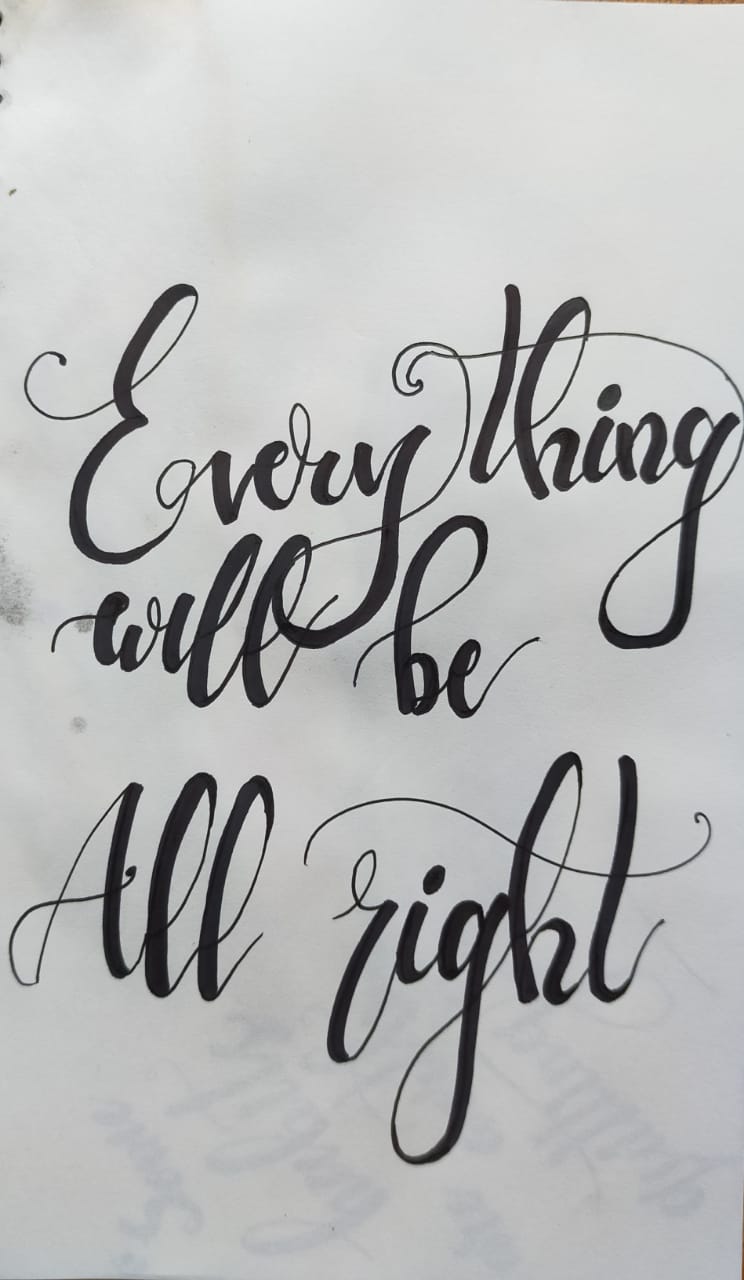 Everything
will be
All right